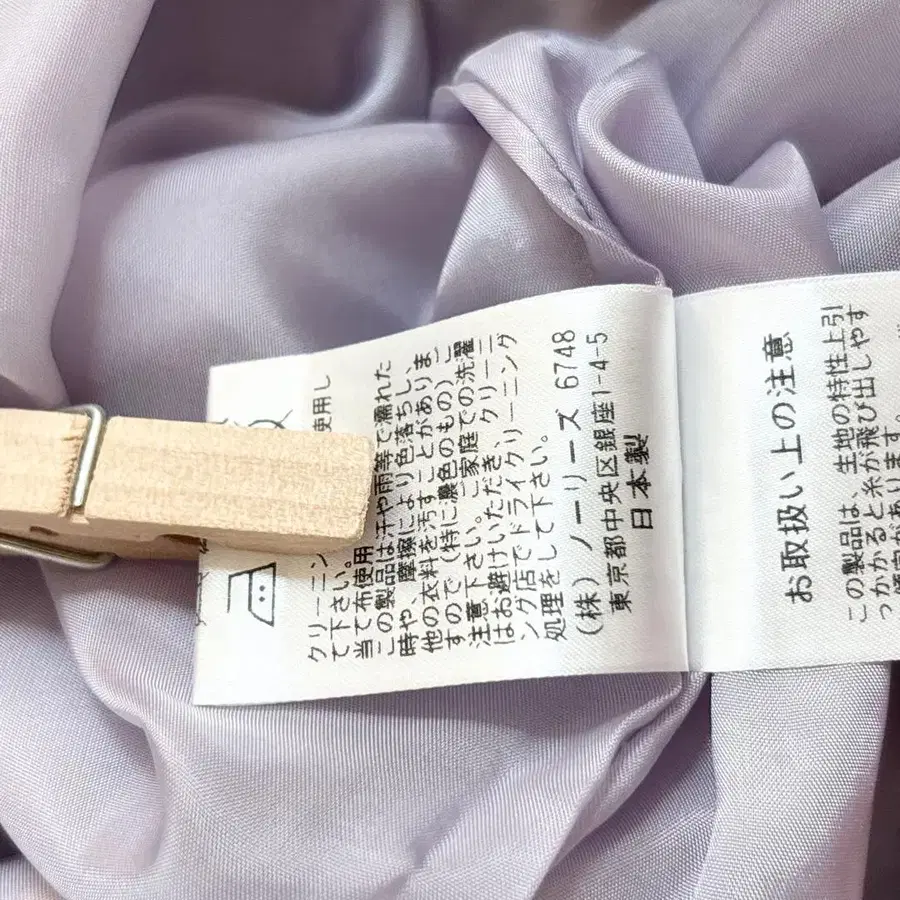 使用し
クリーニン
て下さい。
当て布使用
この製品は汗や雨等で濡れた
時や、摩擦により色落ちし、
他の衣料を汚すことがありま
すので(特に濃色のもの)ご
注意下さい。ご家庭での洗濯
はお避けいただき、クリーニ
ング店でドライクリーニング
処理をして下さい。
(株)ノーリーズ 6748
東京都中央区銀座1-4-5
日本製
お取扱い上の注意
この製品は、生地の特性上引
っかかると糸が飛び出しやす